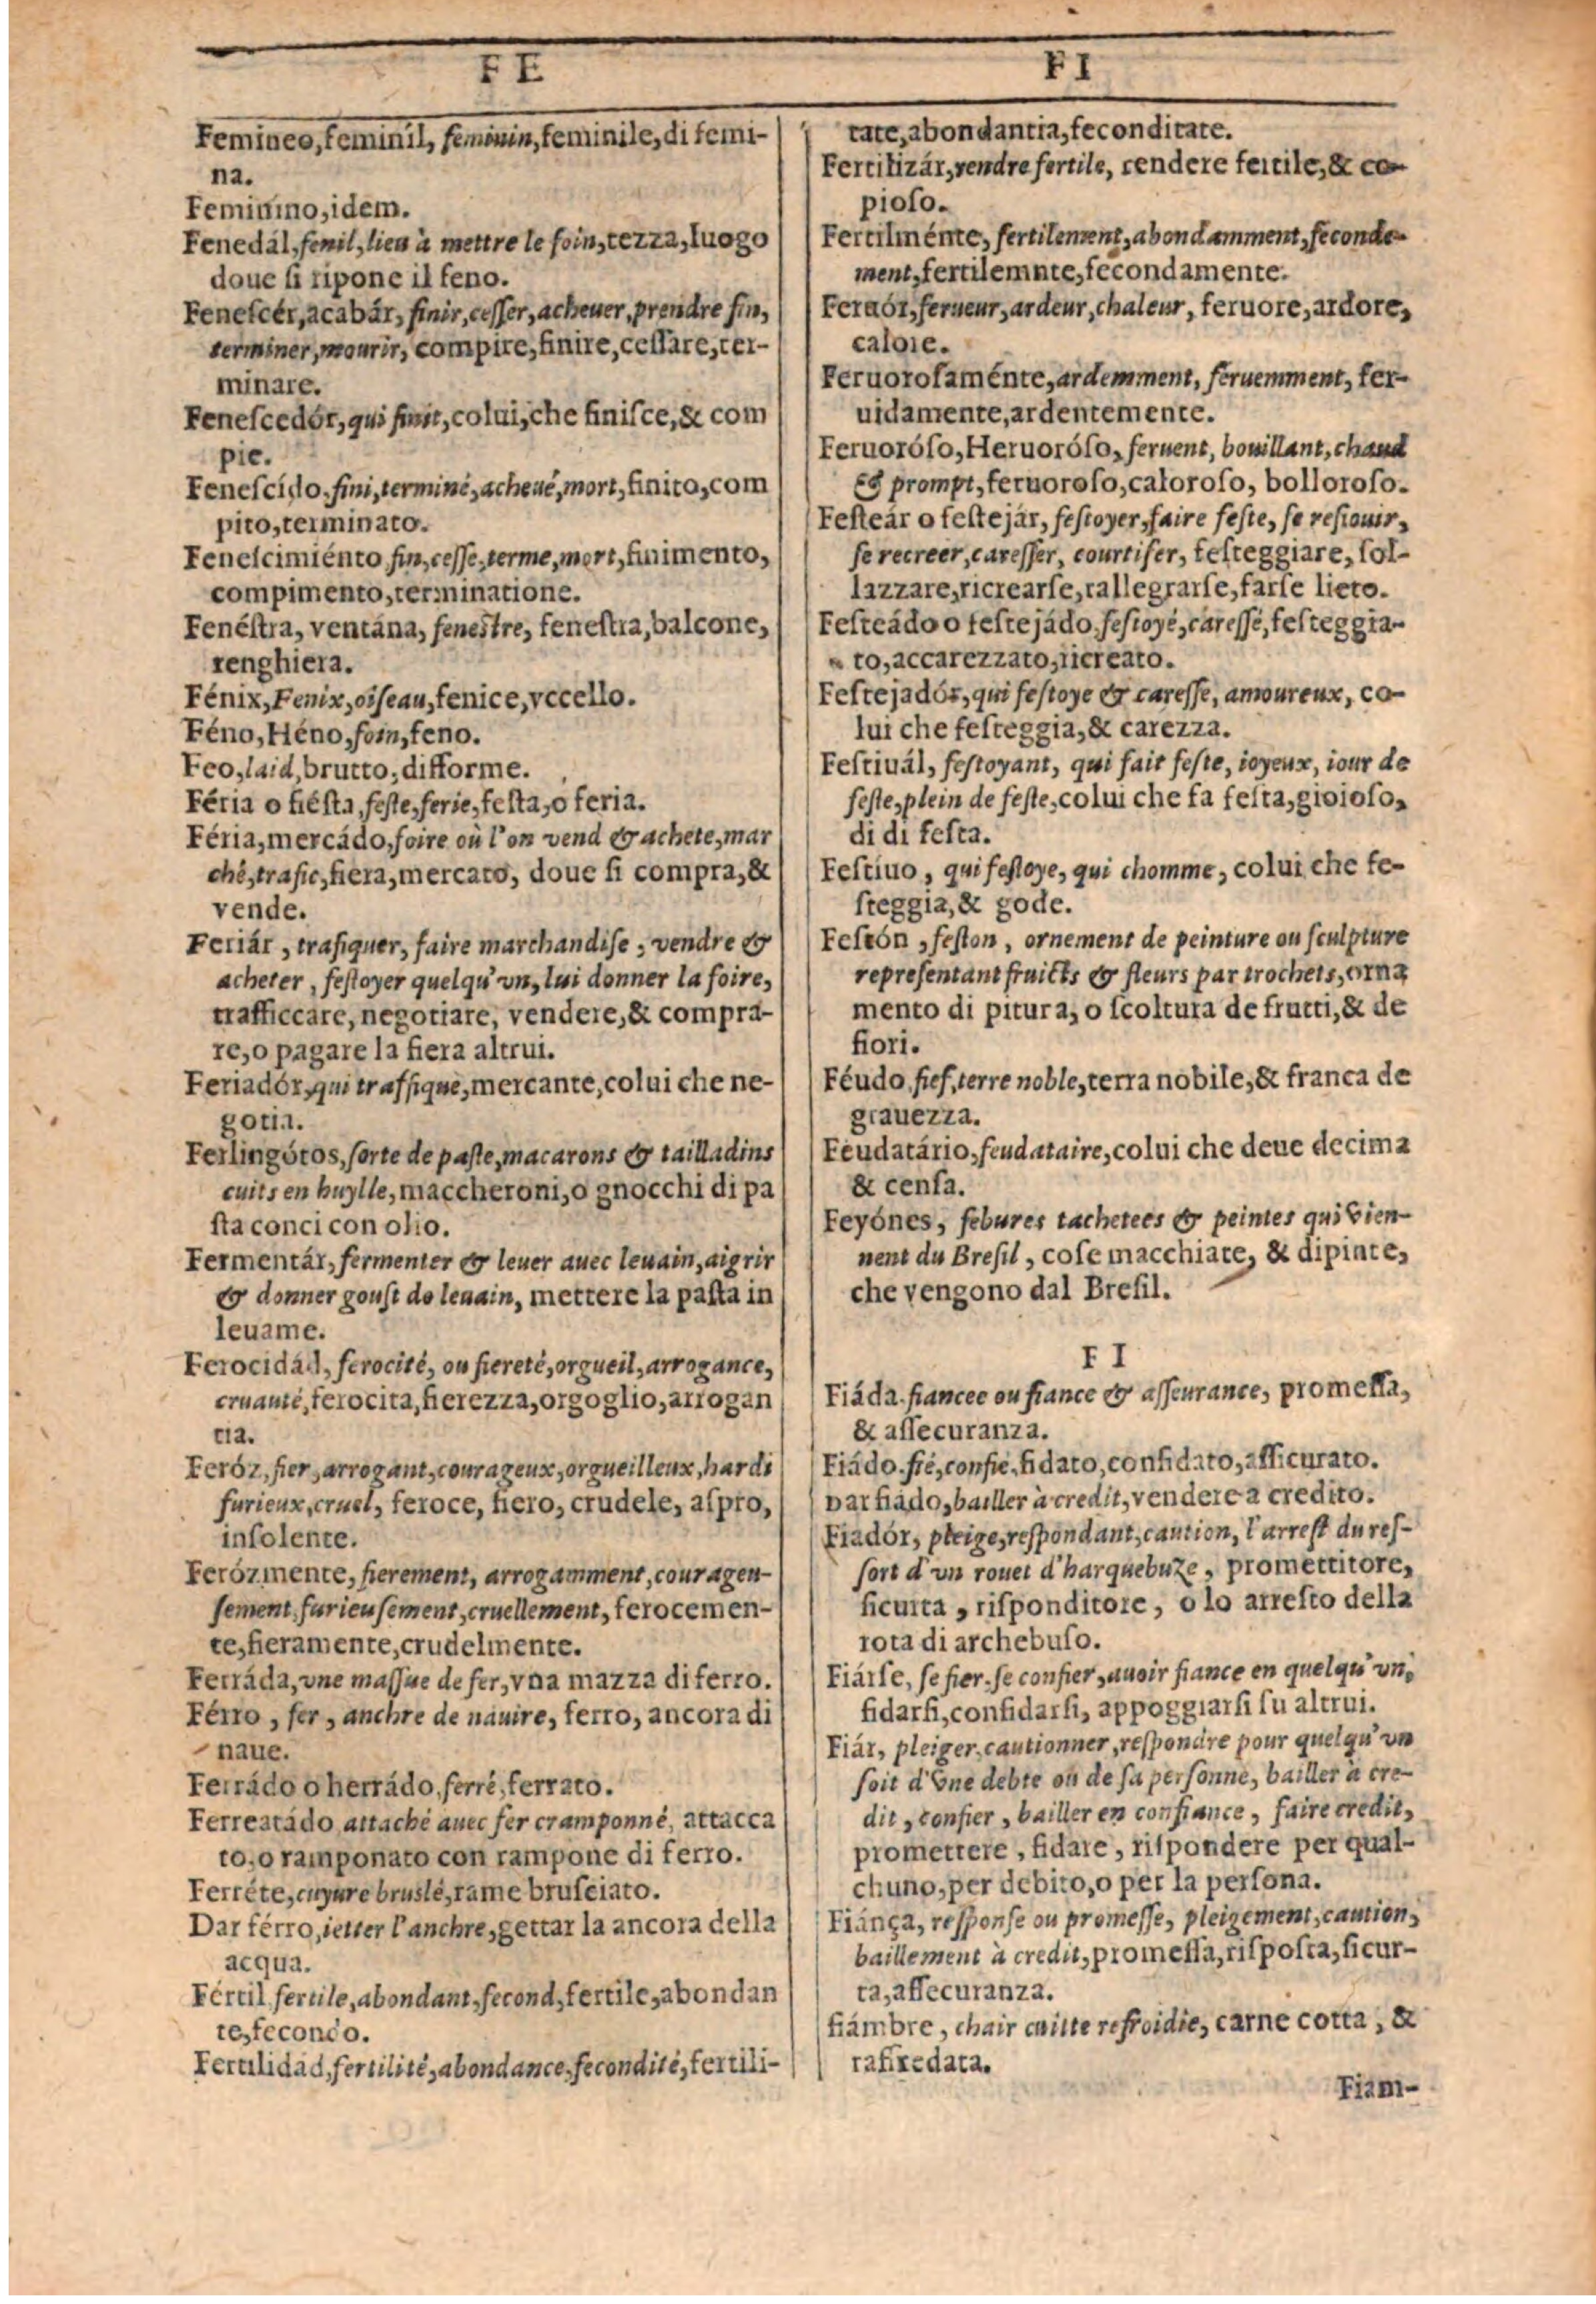 F E
Femineo, feminil, feminin, feminile, di femi-
na.
Feminino, idem.
Fenedál, fenil, lieu à mettre le foin, tezza, luogo
doue ſi ripone il feno.
Feneſcér, acabár, finir, ceſſer, acheuer, prendre fin,
terminer, mourir, compire, finire, ceſſare, ter-
minare.
Feneſcedór, qui finit, colui, che finiſce, & com
pie.
Feneſcído, fini, terminé, acheué, mort, finito, com
pito, terminato.
Feneſcimiénto fin, ceſſe, terme, mort, finimento,
compimento, terminatione.
Fenéſtra, ventána, feneſtre, feneſtra, balcone,
renghiera.
Fénix, Fenix, oiſeau, fenice, vccello.
Féno, Héno, foin, feno.
Feo, laid, brutto, difforme.
Féria o fiéſta, feſte, ferie, feſta, o feria.
Féria, mercádo, foire où l'on vend & achete, mar
ché, trafic, fiera, mercato, doue ſi compra, &
vende.
Feriár, trafiquer, faire marchandiſe, vendre &
acheter, feſtoyer quelqu'vn, lui donner la foire,
trafficcare, negotiare, vendere, & compra-
re, o pagare la fiera altrui.
Feriadór, qui traffique, mercante, colui che ne-
gotia.
Ferlingótos, ſorte de paſte, macarons & tailladins
cuits en huylle, maccheroni, o gnocchi di pa
ſta conci con olio.
Fermentár, fermenter & leuer auec leuain, aigrir
& donner gouſt de leuain, mettere la paſta in
leuame.
Ferocidád, ferocité, ou fiereté, orgueil, arrogance,
cruauté, ferocita, fierezza, orgoglio, arrogan
tia.
Feróz, fier, arrogant, courageux, orgueilleux, hardi
furieux, cruel, feroce, fiero, crudele, aſpro,
inſolente.
Ferózmente, fierement, arrogamment, courageu-
ſement, furieuſement, cruellement, ferocemen-
te, fieramente, crudelmente.
Ferráda, vne maſſue de fer, vna mazza di ferro.
Férro, fer, anchre de nauire, ferro, ancora di
naue.
Ferrádo o herrádo, ferré, ferrato.
Ferreatádo attaché auec fer cramponné, attacca
to, o ramponato con rampone di ferro.
Ferréte, cuyure bruslé, rame bruſciato.
Dar férro, ietter l'anchre, gettar la ancora della
acqua.
Fértil fertile, abondant, fecond, fertile, abondan
te, fecondo.
Fertilidád, fertilité, abondance, fecondité, fertili-
F I
tate, abondantia, feconditate.
Fertilizár, rendre fertile, rendere fertile, & co-
pioſo.
Fertilménte, fertilement, abondamment, feconde-
ment, fertilemnte, fecondamente.
Feruór, ferueur, ardeur, chaleur, feruore, ardore,
calore.
Feruoroſaménte, ardemment, feruemment, fer-
uidamente, ardentemente.
Feruoróſo, Heruoróſo, feruent, bouillant, chaud
& prompt, feruoroſo, caloroſo, bolloroſo.
Feſteár o feſtejár, feſtoyer, faire feſte, ſe reſiouir,
ſe recreer, careſſer, courtiſer, feſteggiare, ſol-
lazzare, ricrearſe, rallegrarſe, farſe lieto.
Feſteádo o feſtejádo, feſtoyé, careſſé, feſteggia-
to, accarezzato, ricreato.
Feſtejadór, qui feſtoye & careſſe, amoureux, co-
lui che feſteggia, & carezza.
Feſtiuál, feſtoyant, qui fait feſte, ioyeux, iour de
feſte, plein de feſte, colui che fa feſta, gioioſo,
di di feſta.
Feſtíuo, qui feſtoye, qui chomme, colui che fe-
ſteggia, & gode.
Feſtón, feſton, ornement de peinture ou ſculpture
repreſentant fruicts & fleurs par trochets, orna
mento di pitura, o ſcoltura de frutti, & de
fiori.
Féudo fief, terre noble, terra nobile, & franca de
grauezza.
Feudatário, feudataire, colui che deue decima
& cenſa.
Feyónes, febures tachetees & peintes qui vien-
nent du Breſil, coſe macchiate, & dipinte,
che vengono dal Breſil.
F I
Fiáda fiancee ou fiance & aſſeurance, promeſſa,
& aſſecuranza.
Fiádo fié, confié, fidato, confidato, aſſicurato.
Dar fiádo, bailler à credit, vendere a credito.
Fiadór, pleige, reſpondant, caution, l'arreſt du reſ-
ſort d'vn rouet d'harquebuze, promettitore,
ſicurta, riſponditore, o lo arreſto della
rota di archebuſo.
Fiárſe, ſe fier, ſe confier, auoir fiance en quelqu'vn,
fidarſi, confidarſi, appoggiarſi ſu altrui.
Fiár, pleiger, cautionner, reſpondre pour quelqu'vn
ſoit d'vne debte ou de ſa perſonne, bailler à cre-
dit, confier, bailler en confiance, faire credit,
promettere, fidare, riſpondere per qual-
chuno, per debito, o per la perſona.
Fiánça, reſponſe ou promeſſe, pleigement, caution,
baillement à credit, promeſſa, riſpoſta, ſicur-
ta, aſſecuranza.
fiámbre, chair cuitte refroidie, carne cotta, &
rafiredata.
Fiam-